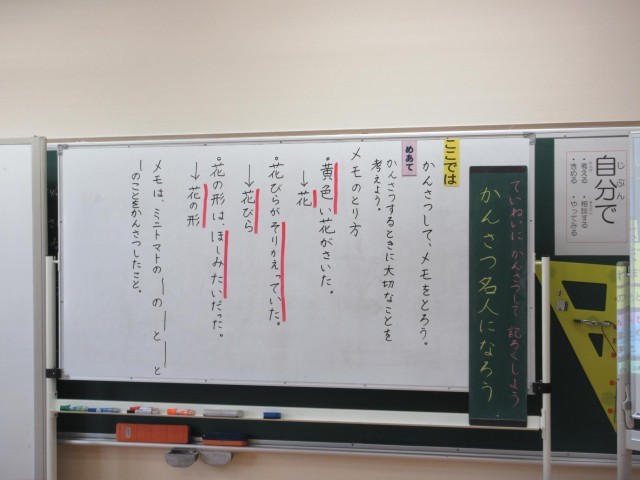 自分で
じぶん
・考える
・きめる
・相談する
・やってみる
ていねいに かんさつして 記ろくしよう
かんさつ名人になろう
ここでは
かんさつして、メモをとろう。
めあて
かんさつするときに大切なことを
考えよう。
メモのとり方
・黄色い花がさいた。
→花
・花びらがそりかえっていた。
→花びら
・花の形は、ほしみたいだった。
→花の形
メモは、ミニトマトの―の―と―と
―のことをかんさつしたこと。